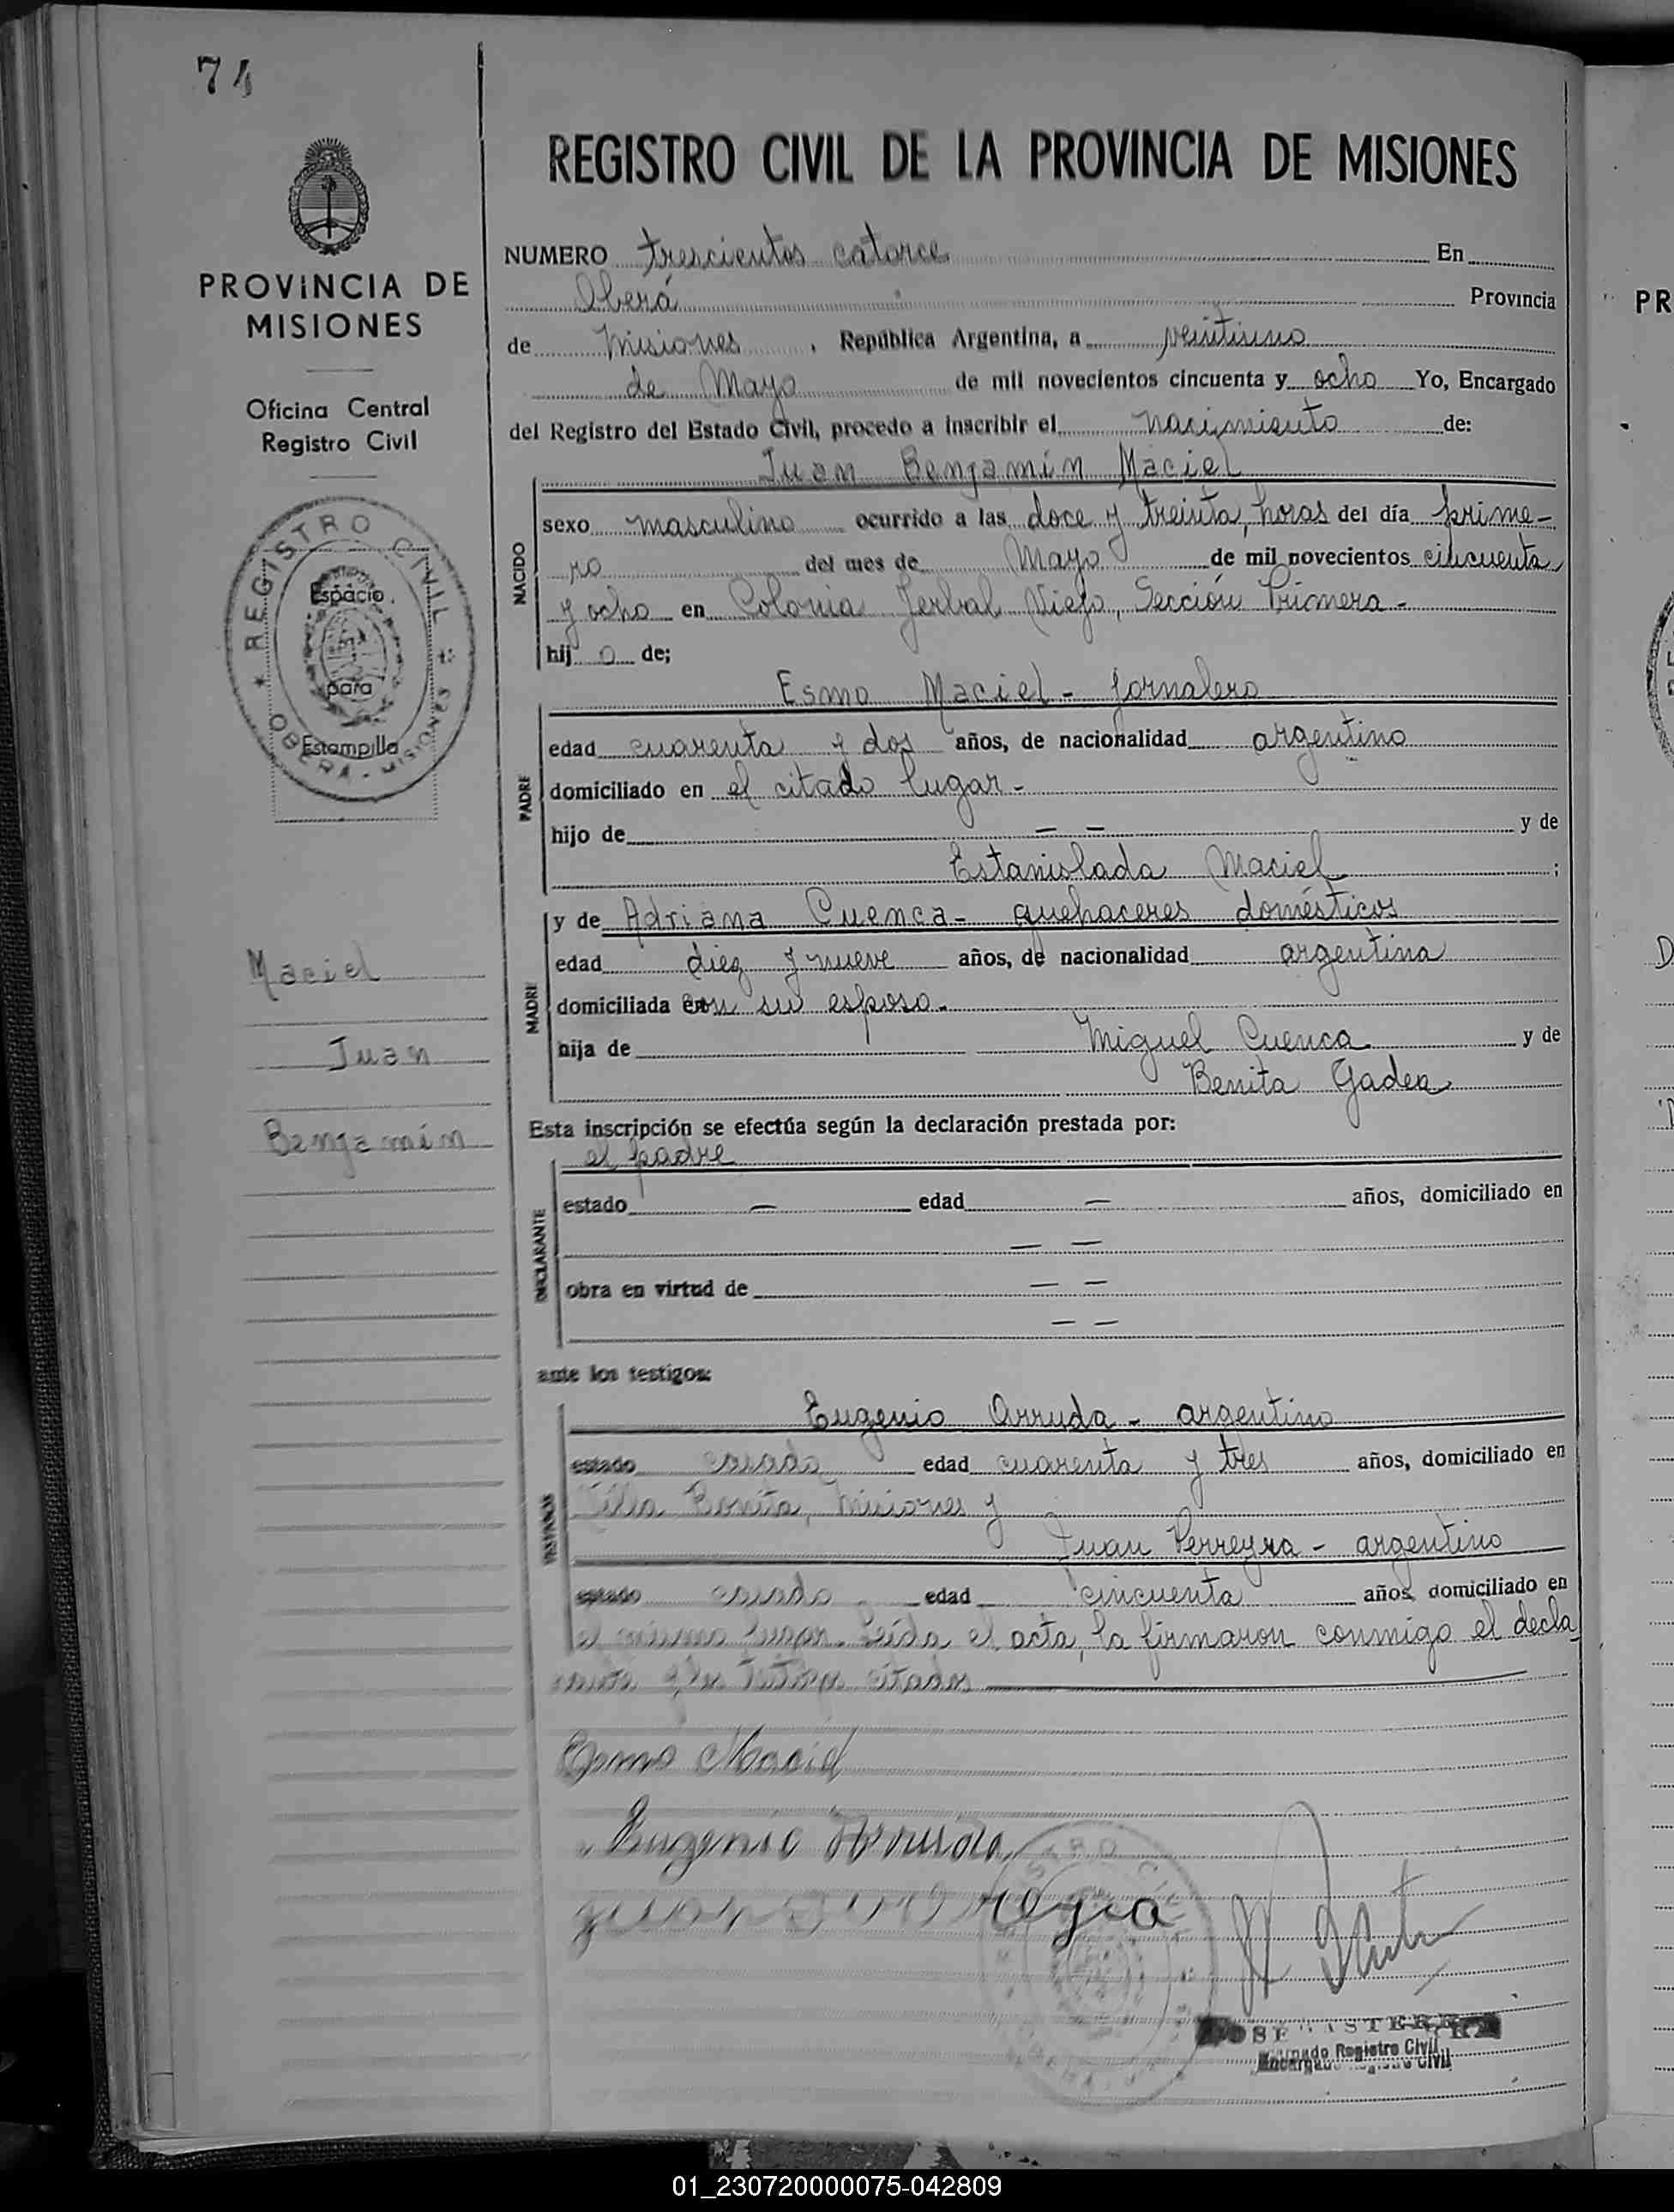 74
REGISTRO CIVIL DE LA PROVINCIA DE MISIONES
PROVINCIA DE
MISIONES
Oficina Central
Registro Civil
REGISTRO CIVIL
OBERA - MISIONES
Espacio
para
Estampilla
Maciel
Juan
Benjamín
NUMERO trescientos catorce En
Oberá Provincia
de Misiones, República Argentina, a veintiuno
de Mayo de mil novecientos cincuenta y ocho Yo, Encargado
del Registro del Estado Civil, procedo a inscribir el nacimiento de:
Juan Benjamín Maciel
NACIDO
sexo masculino ocurrido a las doce y treinta, horas del día prime-
ro del mes de Mayo de mil novecientos cincuenta
y ocho en Colonia Yerbal Viejo, Sección Primera -
hij o de;
Esmo Maciel - jornalero
PADRE
edad cuarenta y dos años, de nacionalidad argentino
domiciliado en el citado lugar -
hijo de — — y de
Estanislada Maciel ;
y de Adriana Cuenca - quehaceres domésticos
MADRE
edad diez y nueve años, de nacionalidad argentina
domiciliada con su esposo.
hija de Miguel Cuenca y de
Benita Gadea
Esta inscripción se efectúa según la declaración prestada por:
el padre
DECLARANTE
estado — edad — años, domiciliado en
— —
obra en virtud de — —
— —
ante los testigos:
Eugenio Arruda - argentino
TESTIGOS
estado casado edad cuarenta y tres años, domiciliado en
Villa Bonita, Misiones y
Juan Perreyra - argentino
estado casado edad cincuenta años, domiciliado en
el mismo lugar. Leída el acta, la firmaron conmigo el decla
rante y los testigos citados
Esmo Maciel
Eugenio Arruda
Encargado Registro Civil
01_230720000075-042809